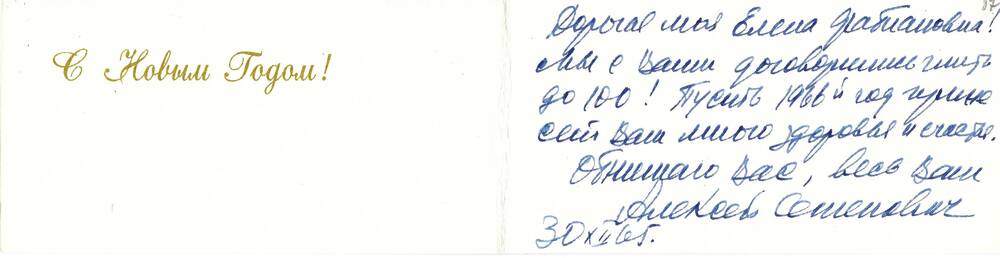 С Новым Годом!
87
Дорогая моя Елена Фабиановна!
Мы с Вами договорились жить
до 100! Пусть 1966й год прине
сет Вам много здоровья и счастья.
Обнимаю Вас, весь Ваш
Алексей Семенович
30 XII 65.